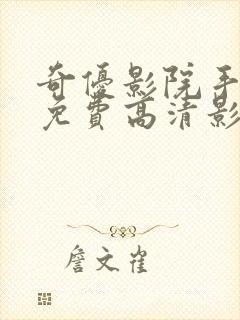 奇優影院手
免費高清影
詹文雀